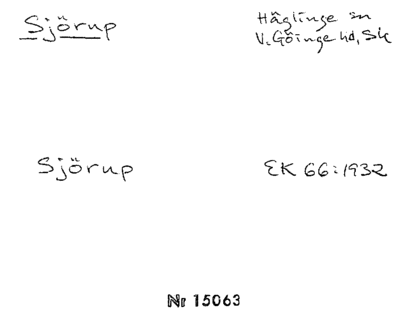 Sjörup
Häglinge sn
V. Göinge hd, Sk
Sjörup
EK 66:1932
Nr 15063